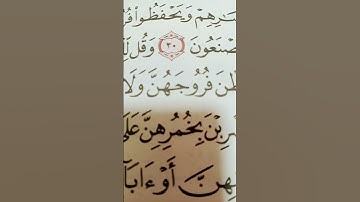 ـرِهِمْ وَيَحْفَظُوا۟ فُرُ
صْنَعُونَ ﴿٣٠﴾ وَقُل لِّلْ
ظْنَ فُرُوجَهُنَّ وَلَا
ضْرِبْنَ بِخُمُرِهِنَّ عَلَىٰ
هِنَّ أَوْ ءَابَآ